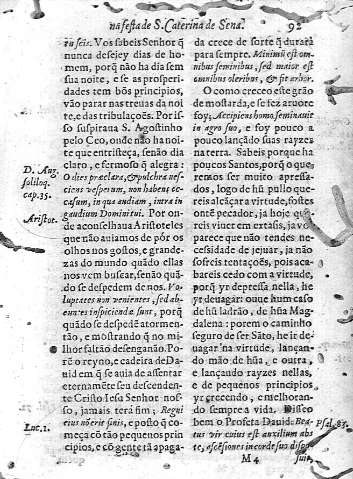 nā festa de S. Caterina de Sena.
92
tu scis. Vos sabeis Senhor q̃
nunca desejey dias de ho-
mem, porq̃ não ha dia sem
sua noite, e se as prosperi-
dades tem bõs principios,
vão parar nas treuas da noi
te, e das tribulações. Por is-
so suspiraua S. Agostinho
pelo Ceo, onde não ha noi-
te que entristeça, senão dia
claro, e fermoso q̃ alegra:
O dies præclara, & pulchra nes-
ciens vesperum, non habens oc-
casum, in qua audiam, intra in
gaudium Domini tui. Por on-
de aconselhaua Aristoteles
que não auiamos de pòr os
olhos nos gostos, e grande-
zas do mundo quãdo ellas
nos vem buscar, senão quã-
do se despedem de nos. Vo-
luptates non venientes, sed ab-
euntes inspiciendæ sunt, porq̃
quãdo se despedẽ atormen-
tão, e mostrando q̃ no mi-
lhor faltão desenganão. Po-
rẽ o reyno, e cadeira de Da-
uid em q̃ se auia de assentar
eternamẽte seu descenden-
te Cristo Iesu Senhor nos-
so, jamais terá fim: Regni
eius nõ erit finis, e posto q̃ co-
meça cõ tão pequenos prin
cipios, e cõ gente tã apaga-
D. Aug.
soliloq.
cap. 35.
Aristot.
Luc. 1.
da crece de sorte q̃ durará
para sempre. Minimũ est om-
nibus seminibus, sed maior est
omnibus oleribus, & fit arbor.
O como creceo este grão
de mostarda, e se fez aruore
foy; Accipiens homo seminauit
in agro suo, e foy pouco a
pouco lançādo suas rayzes
na terra. Sabeis porque ha
poucos Santos, porq̃ o que
remos ser muito apressa-
dos, logo de hũ pullo que-
reis alcãçar a virtude, fostes
ontẽ pecador, ja hoje que
reis viuer em extasis, ja vos
parece que não tendes ne-
cessidade de jejuar, ja não
sofreis tentações, pois aca-
bareis cedo com a virtude,
porq̃ yr depressa nella, he
yr deuagar: ouue hum caso
de hũ ladrão, de hũa Mag-
dalena: porem o caminho
seguro de ser Sãto, he ir de-
uagar na virtude, lançan-
do mão de hũa, e outra,
e lançando rayzes nellas,
e de pequenos principios
yr crecendo, e melhoran-
do sempre a vida. Disseo
bem o Profeta Dauid: Bea-
tus vir cuius est auxilium abs
te, ascẽsiones in corde suo dispo-
Psal. 83.
M 4
suit,